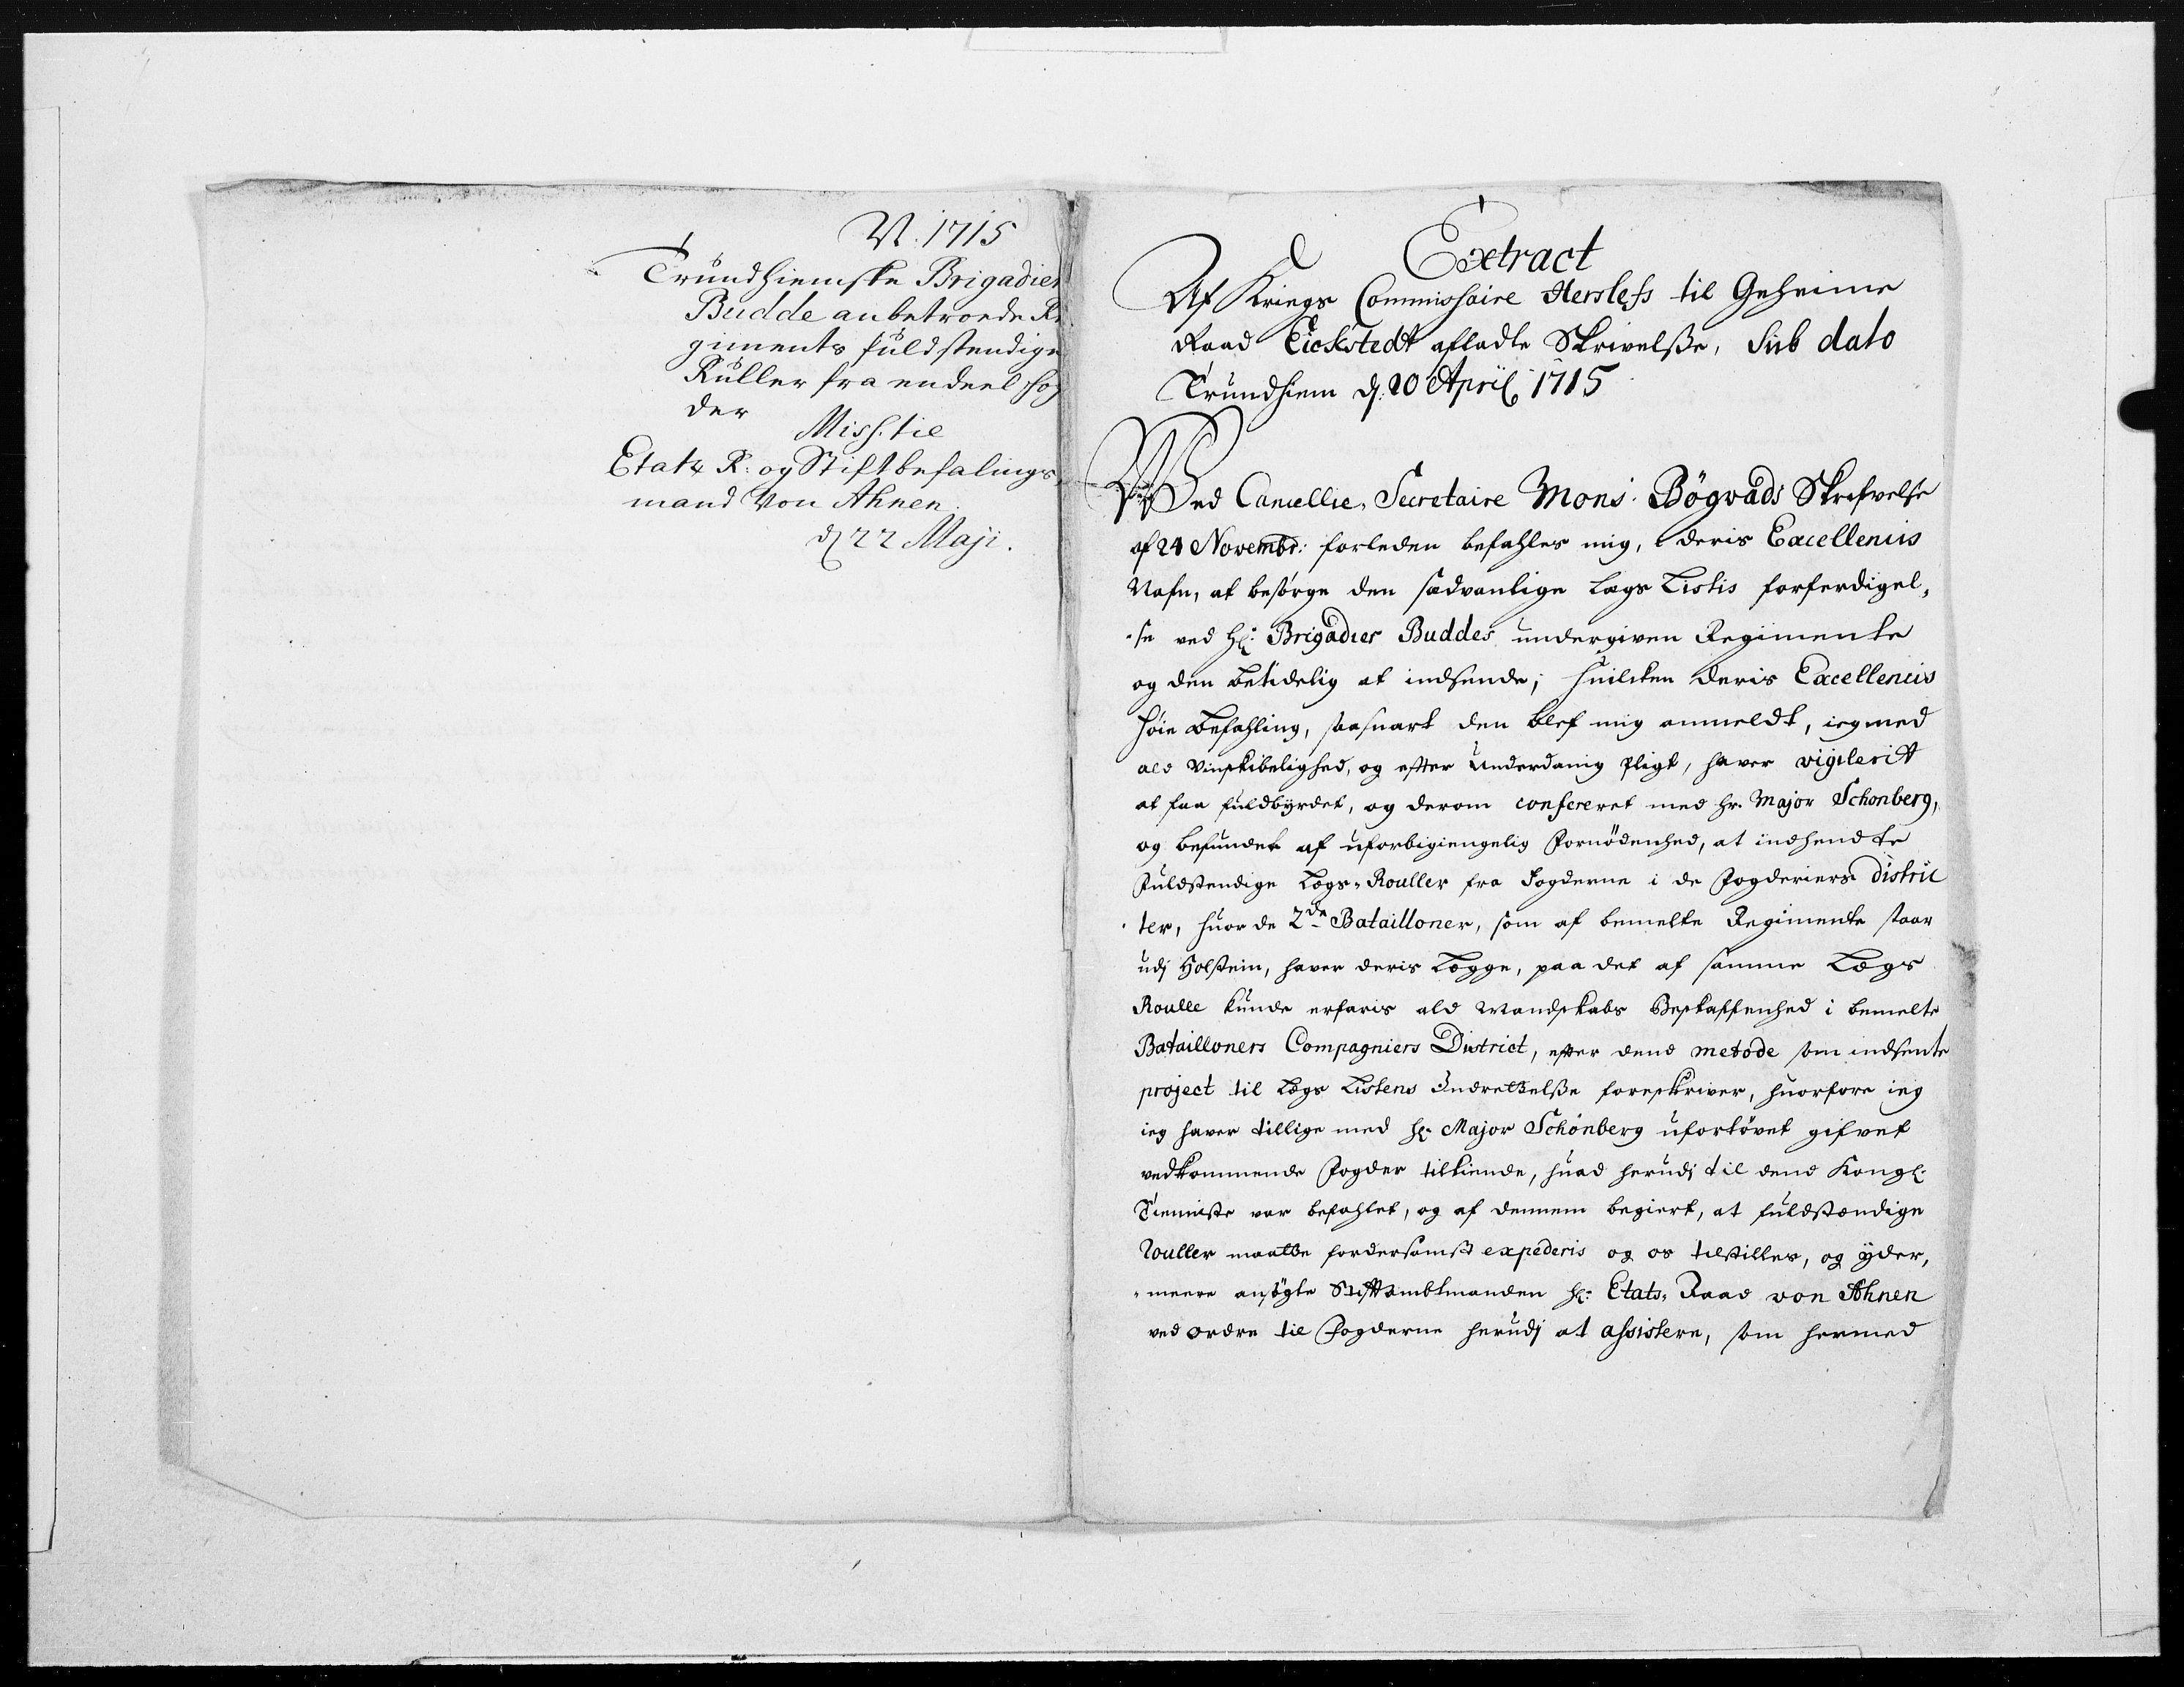 N. 1715
Trundhiemske Brigadier
Budde anbetroede Re
giments fuldstendige
Ruller fra endeel fog
der
Miss. til
Etats R: og Stiftbefalings
mand Von Ahnen.
d 22 Maji.
Extract
Af Kriegs Commissaire Herslefs til Geheime
Raad Eickstedt afladte Skrivelsse, Sub dato
Trundhiem d: 20 April 1715
Ved Cancellie-Secretaire Mons. Bögvads Skrifvelse
af 24 Novembr: forleden befahles mig, i deris Excellencis
Nafn, at besørge den sædvanlige Legs Listis forferdigel-
-se ved Hr: Brigadier Buddes undergiven Regimente
og den betidelig at indsende; huilcken deris Excellencis
høie Befahling, saasnart den blef mig anmeldt, ieg med
ald Vinskibelighed, og efter underdanig Pligt, haver vigilerit
at faa fuldbyrdet, og derom confereret med Hr. Major Schonberg,
og befundet af uforbigiengelig Fornödenhed, at indhendte
Fuldstendige Legs-Rouller fra Fogderne i de Fogderiers distric
ter, huor de 2de Batailloner, som af bemelte Regimente staar
udj Holstein, haver deris Legge, paa det af samme Legs
Roulle kunde erfaris ald Mandskabs Beskaffenhed i bemelte
Batailloners Compagniers District, efter dend metode som indsente
project til Legs Listens Indrettelsse foreskriver, huorfore ieg
ieg haver tillige med Hr. Major Schönberg ufortövet gifvet
vedkommende Fogder tilkiende, huad herudj til dend Kongl:
Tienniste var befahlet, og af dennem begiert, at fuldstændige
Rouller maatte fordersamst expederis og os tilstilles, og yder-
-meere ansögte Stiftambtmanden Hr: Etats-Raad von Ahnen
ved ordre til Fogderne herudj at assistere, som hermed